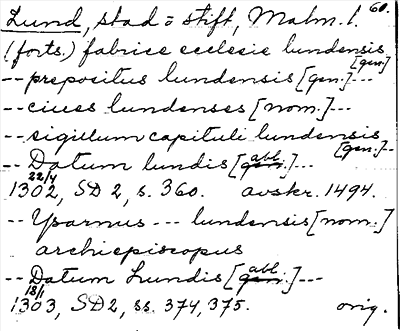 Lund, stad o stift, Malm. l. 60.
(forts.) fabrice ecclesie lundensis [gen]
-- prepositus lundensis [gen.]---
-- ciues lundenses [nom.]---
-- sigillum capituli lundensis [gen.]--
-- Datum lundis [gen. abl.]---
22/4
1302, SD 2, s. 360. avskr. 1494.
-- Ysarnus --- lundensis [nom.]
archiepiscopus
-- Datum Lundis [gen. abl.]---
18/1
1303, SD2, ss. 374, 375. orig.